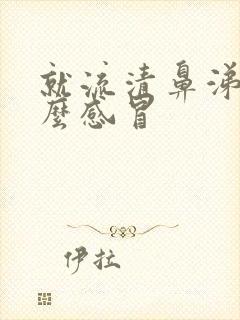 就流清鼻涕
麼感冒
伊拉